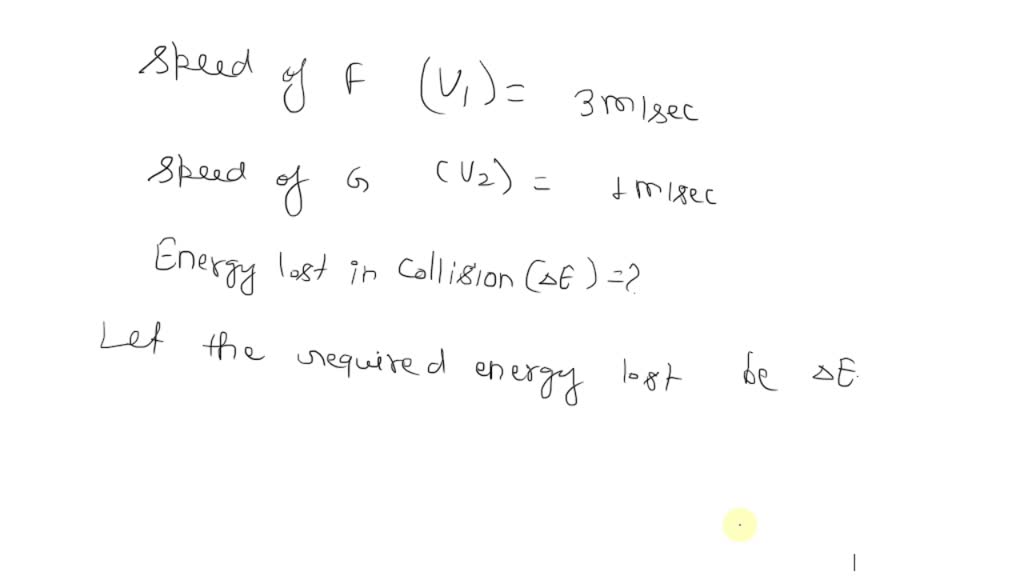 Speed of F (V1) = 3 m/sec
Speed of G (V2) = 1 m/sec
Energy lost in Collision (ΔE) = ?
Let the required energy lost be ΔE.